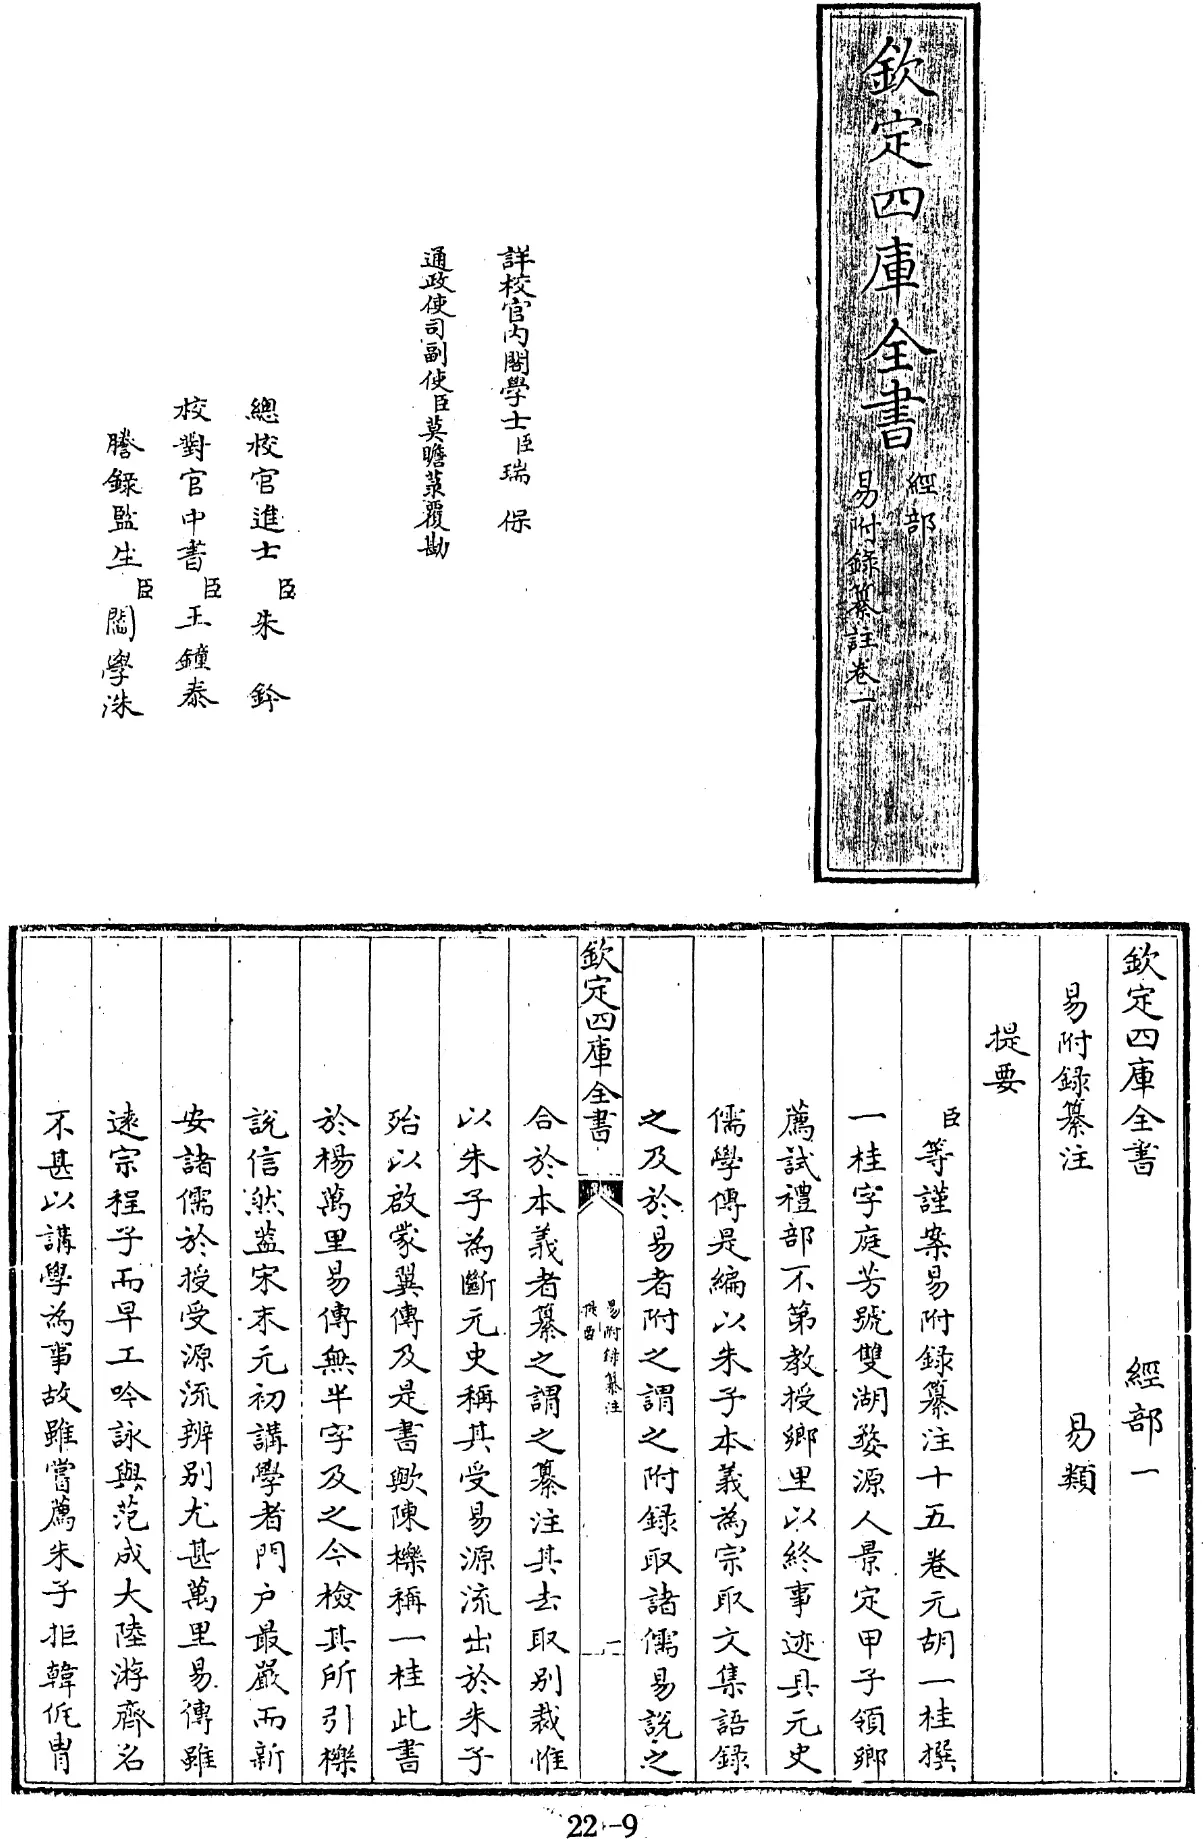 欽定四庫全書
經部
易附錄纂註卷一
詳校官內閣學士臣瑞保
通政使司副使臣莫瞻菉覆勘
總校官進士臣朱鈐
校對官中書臣王鐘泰
謄錄監生臣閻學洙
欽定四庫全書 經部一
易附録纂注 易類
提要
臣等謹案易附録纂注十五卷元胡一桂撰
一桂字庭芳號雙湖婺源人景定甲子領鄉
薦試禮部不第教授鄉里以終事迹具元史
儒學傳是編以朱子本義為宗取文集語録
之及於易者附之謂之附録取諸儒易說之
欽定四庫全書
易附録纂注
提要
一
合於本義者纂之謂之纂注其去取別裁惟
以朱子為斷元史稱其受易源流出於朱子
殆以啟蒙翼傳及是書歟陳櫟稱一桂此書
於楊萬里易傳無半字及之今檢其所引櫟
說信然盖宋末元初講學者門户最嚴而新
安諸儒於授受源流辨別尤甚萬里易傳雖
遠宗程子而早工吟詠與范成大陸游齊名
不甚以講學為事故雖嘗薦朱子拒韓侂胄
22-9